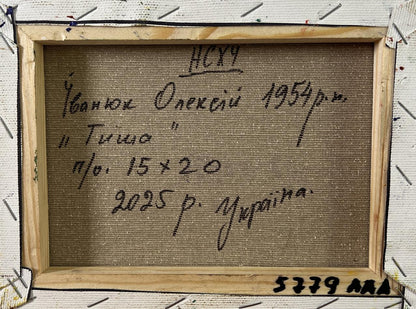 НСХУ
Іванюк Олексій 1954 р.н.
„Тиша"
п/о. 15×20
2025 р. Україна.
5779 ААА